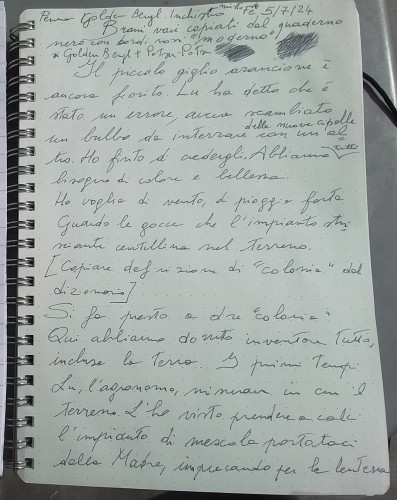 Penna Golden Beryl. Inchiostro misto* Fe 5/7/24
Brani vari copiati dal quaderno
nero con bordi rossi "moderno"
* Golden Beryl + Potsu-Potsu
Il piccolo giglio arancione è
ancora fiorito. Lu ha detto che è
stato un errore, aveva scambiato
un bulbo da interrare con un'al
delle nuove cipolle
tro. Ho finto di credergli. Abbiamo tutti
bisogno di colore e bellezza.
Ho voglia di vento, di pioggia forte.
Guardo le gocce che l'impianto stri
sciante centellina nel terreno.
[Copiare definizione di "colonia" dal
dizionario]
Si fa presto a dire "colonia"
Qui abbiamo dovuto inventare tutto,
inclusa la terra. I primi tempi
Lu, l'agronomo, misurava in cm il
terreno. L'ho visto prendere a calci
l'impianto di mescola portataci
dalla Madre, imprecando per la lentezza